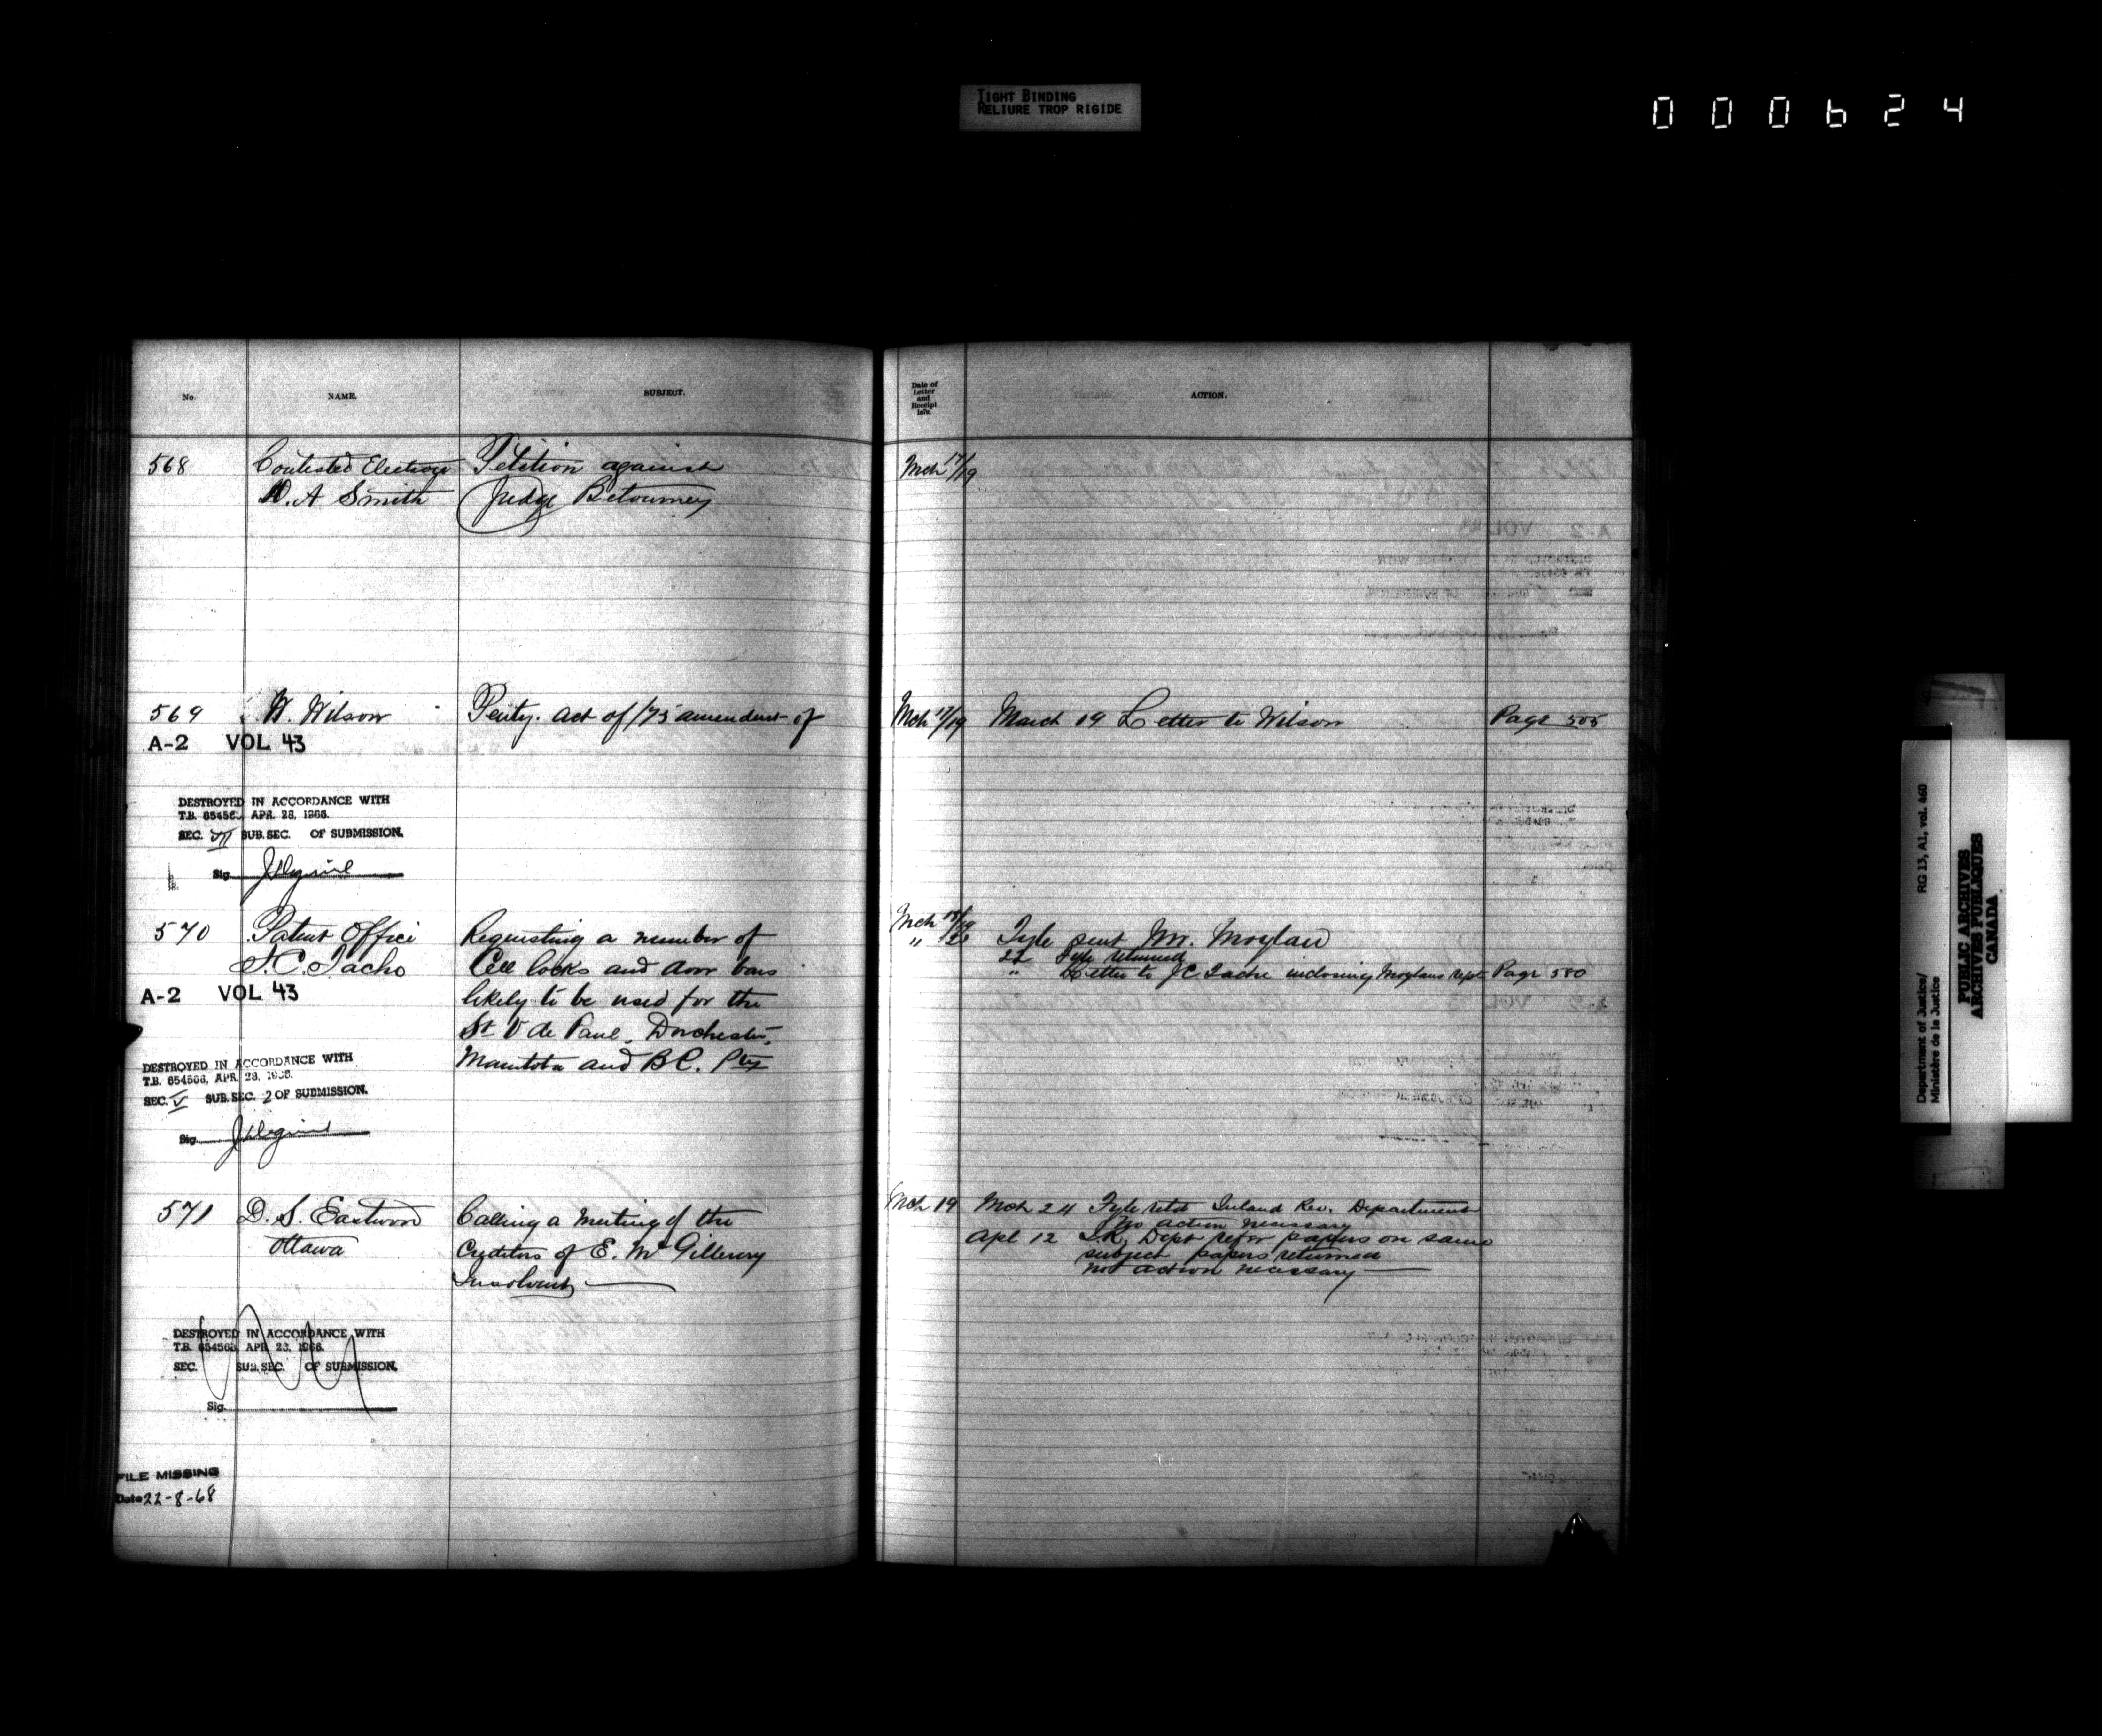 TIGHT BINDING
RELIURE TROP RIGIDE
000624
No. NAME. SUBJECT.
Date of
Letter
and
Receipt
187 .
ACTION.
568 Contested Elections Petition against Mch 17/19
D. A Smith Judge Betourney
569 W. Wilson Penty. Act of /75 amendmt of Mch 17/19 March 19 Letter to Wilson Page 505
A-2 VOL 43
DESTROYED IN ACCORDANCE WITH
T.B. 654563, APR. 28, 1966.
SEC. VI SUB.SEC. OF SUBMISSION.
Sig.
570 Patent Office Requesting a number of Mch 18/19 Fyle sent Mr. Moylan
J. C. Tache Cell locks and door bars 22 Fyle returned
" Letter to J C Tache inclosing Moylans rept Page 580
A-2 VOL 43 likely to be used for the
St V de Paul, Dorchester,
Manitoba and B C. Ptys
DESTROYED IN ACCORDANCE WITH
T.B. 654563, APR. 28, 1966.
SEC. V SUB.SEC. 2 OF SUBMISSION.
Sig.
571 D. S. Eastwood Calling a meeting of the Mch 19 Mch 24 Fyle retd Inland Rev. Department
no action necessary
Ottawa Creditors of E. McGillivray Apl 12 I.R. Dept refer papers on same
subject papers returned
Insolvent not action necessary
DESTROYED IN ACCORDANCE WITH
T.B. 654563, APR. 28, 1966.
SEC. SUB.SEC. OF SUBMISSION.
Sig.
FILE MISSING
Date 22-8-68
Department of Justice/ RG 13, A1, vol. 460
Ministère de la Justice
PUBLIC ARCHIVES
ARCHIVES PUBLIQUES
CANADA